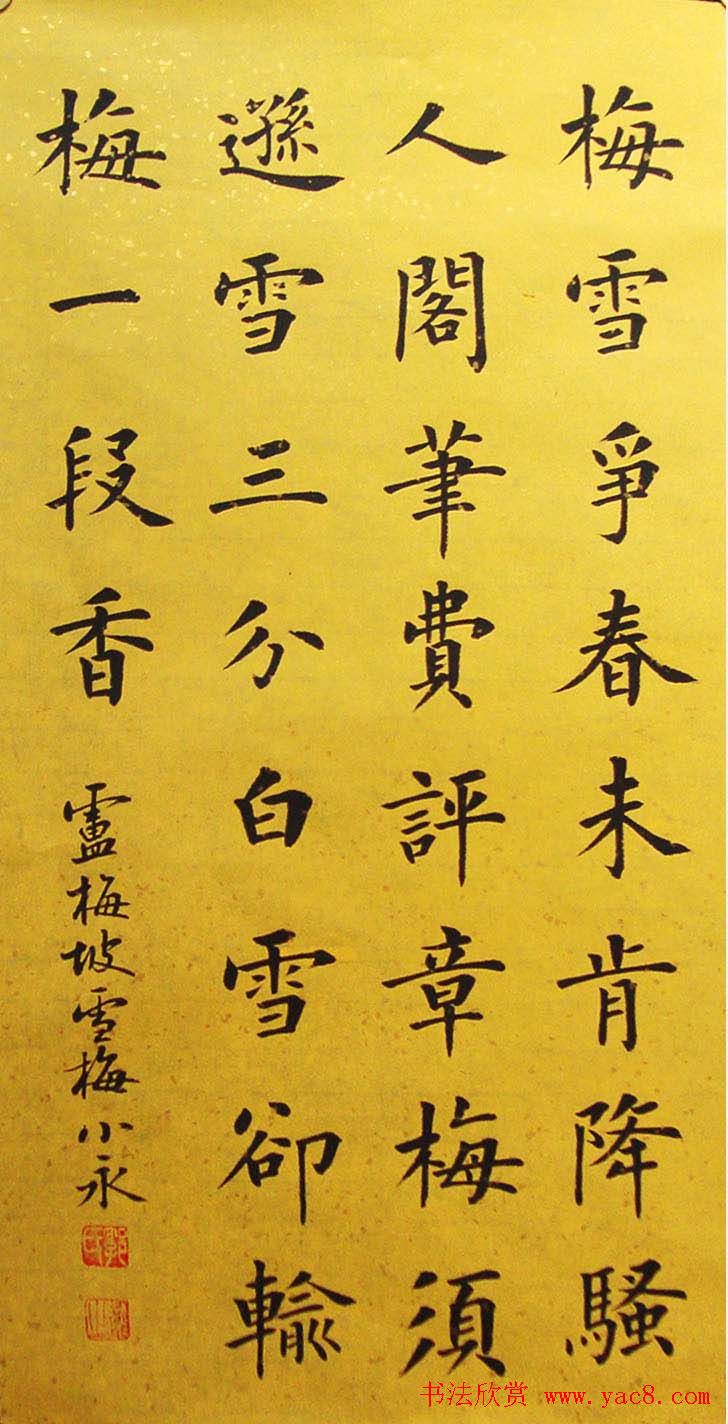 梅雪爭春未肯降騷
人閣筆費評章梅須
遜雪三分白雪卻輸
梅一段香
盧梅坡雪梅小永
书法欣赏 www.yac8.com